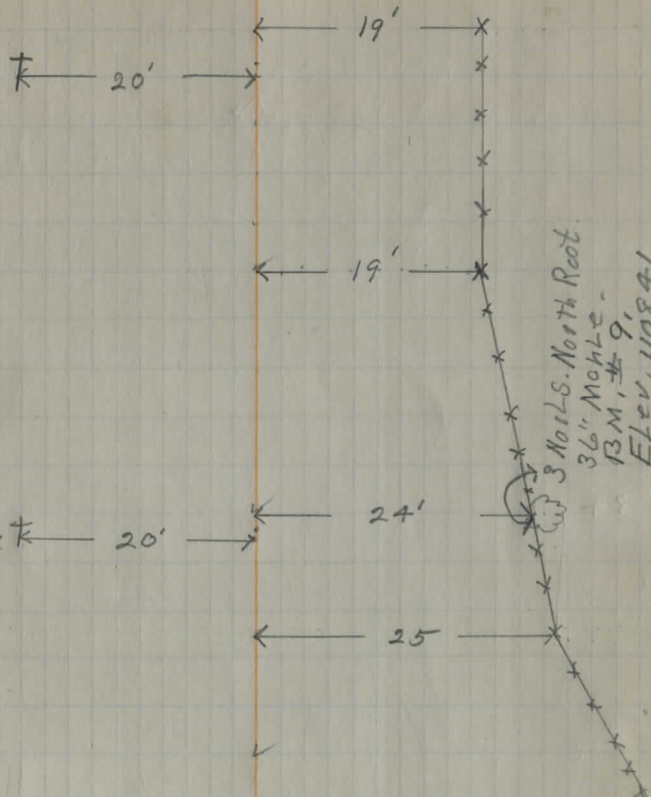 19'
20'
19'
3 Nails. North Root.
36" Maple.
B.M. # 9,
Elev. 1108.41
24'
20'
25